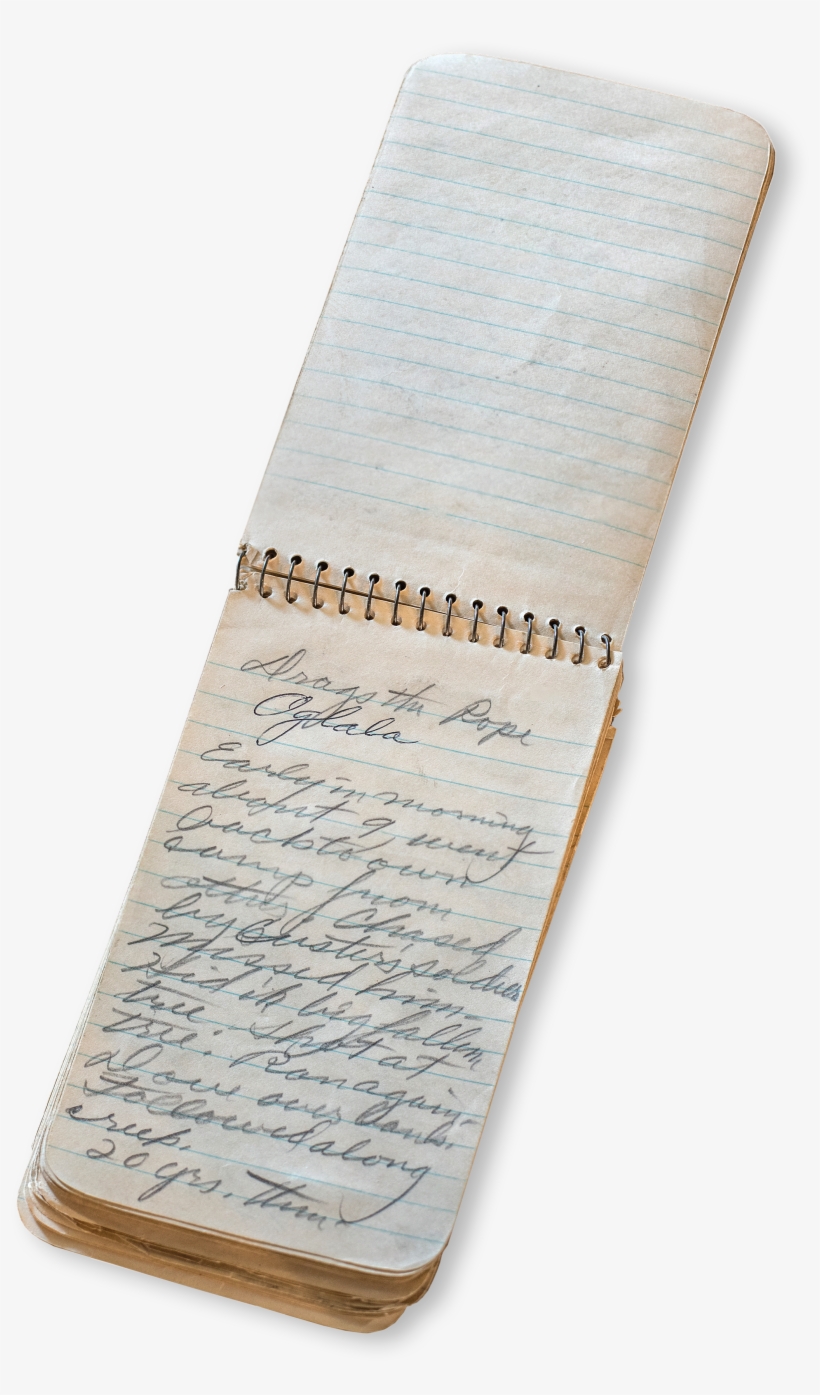 Drags the Rope
Oglala
Early in morning
about 9 went
back down
camp from
other. Chased
by Custers soldiers
Missed him.
Hid in big fallen
tree. Shot at
tree. Ran again.
Dove over bank.
Followed along
creek.
20 yrs. then.